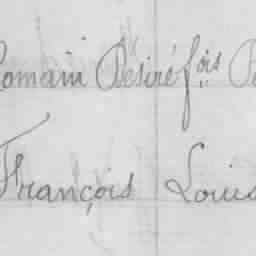 Romain Désiré fois
François Louis